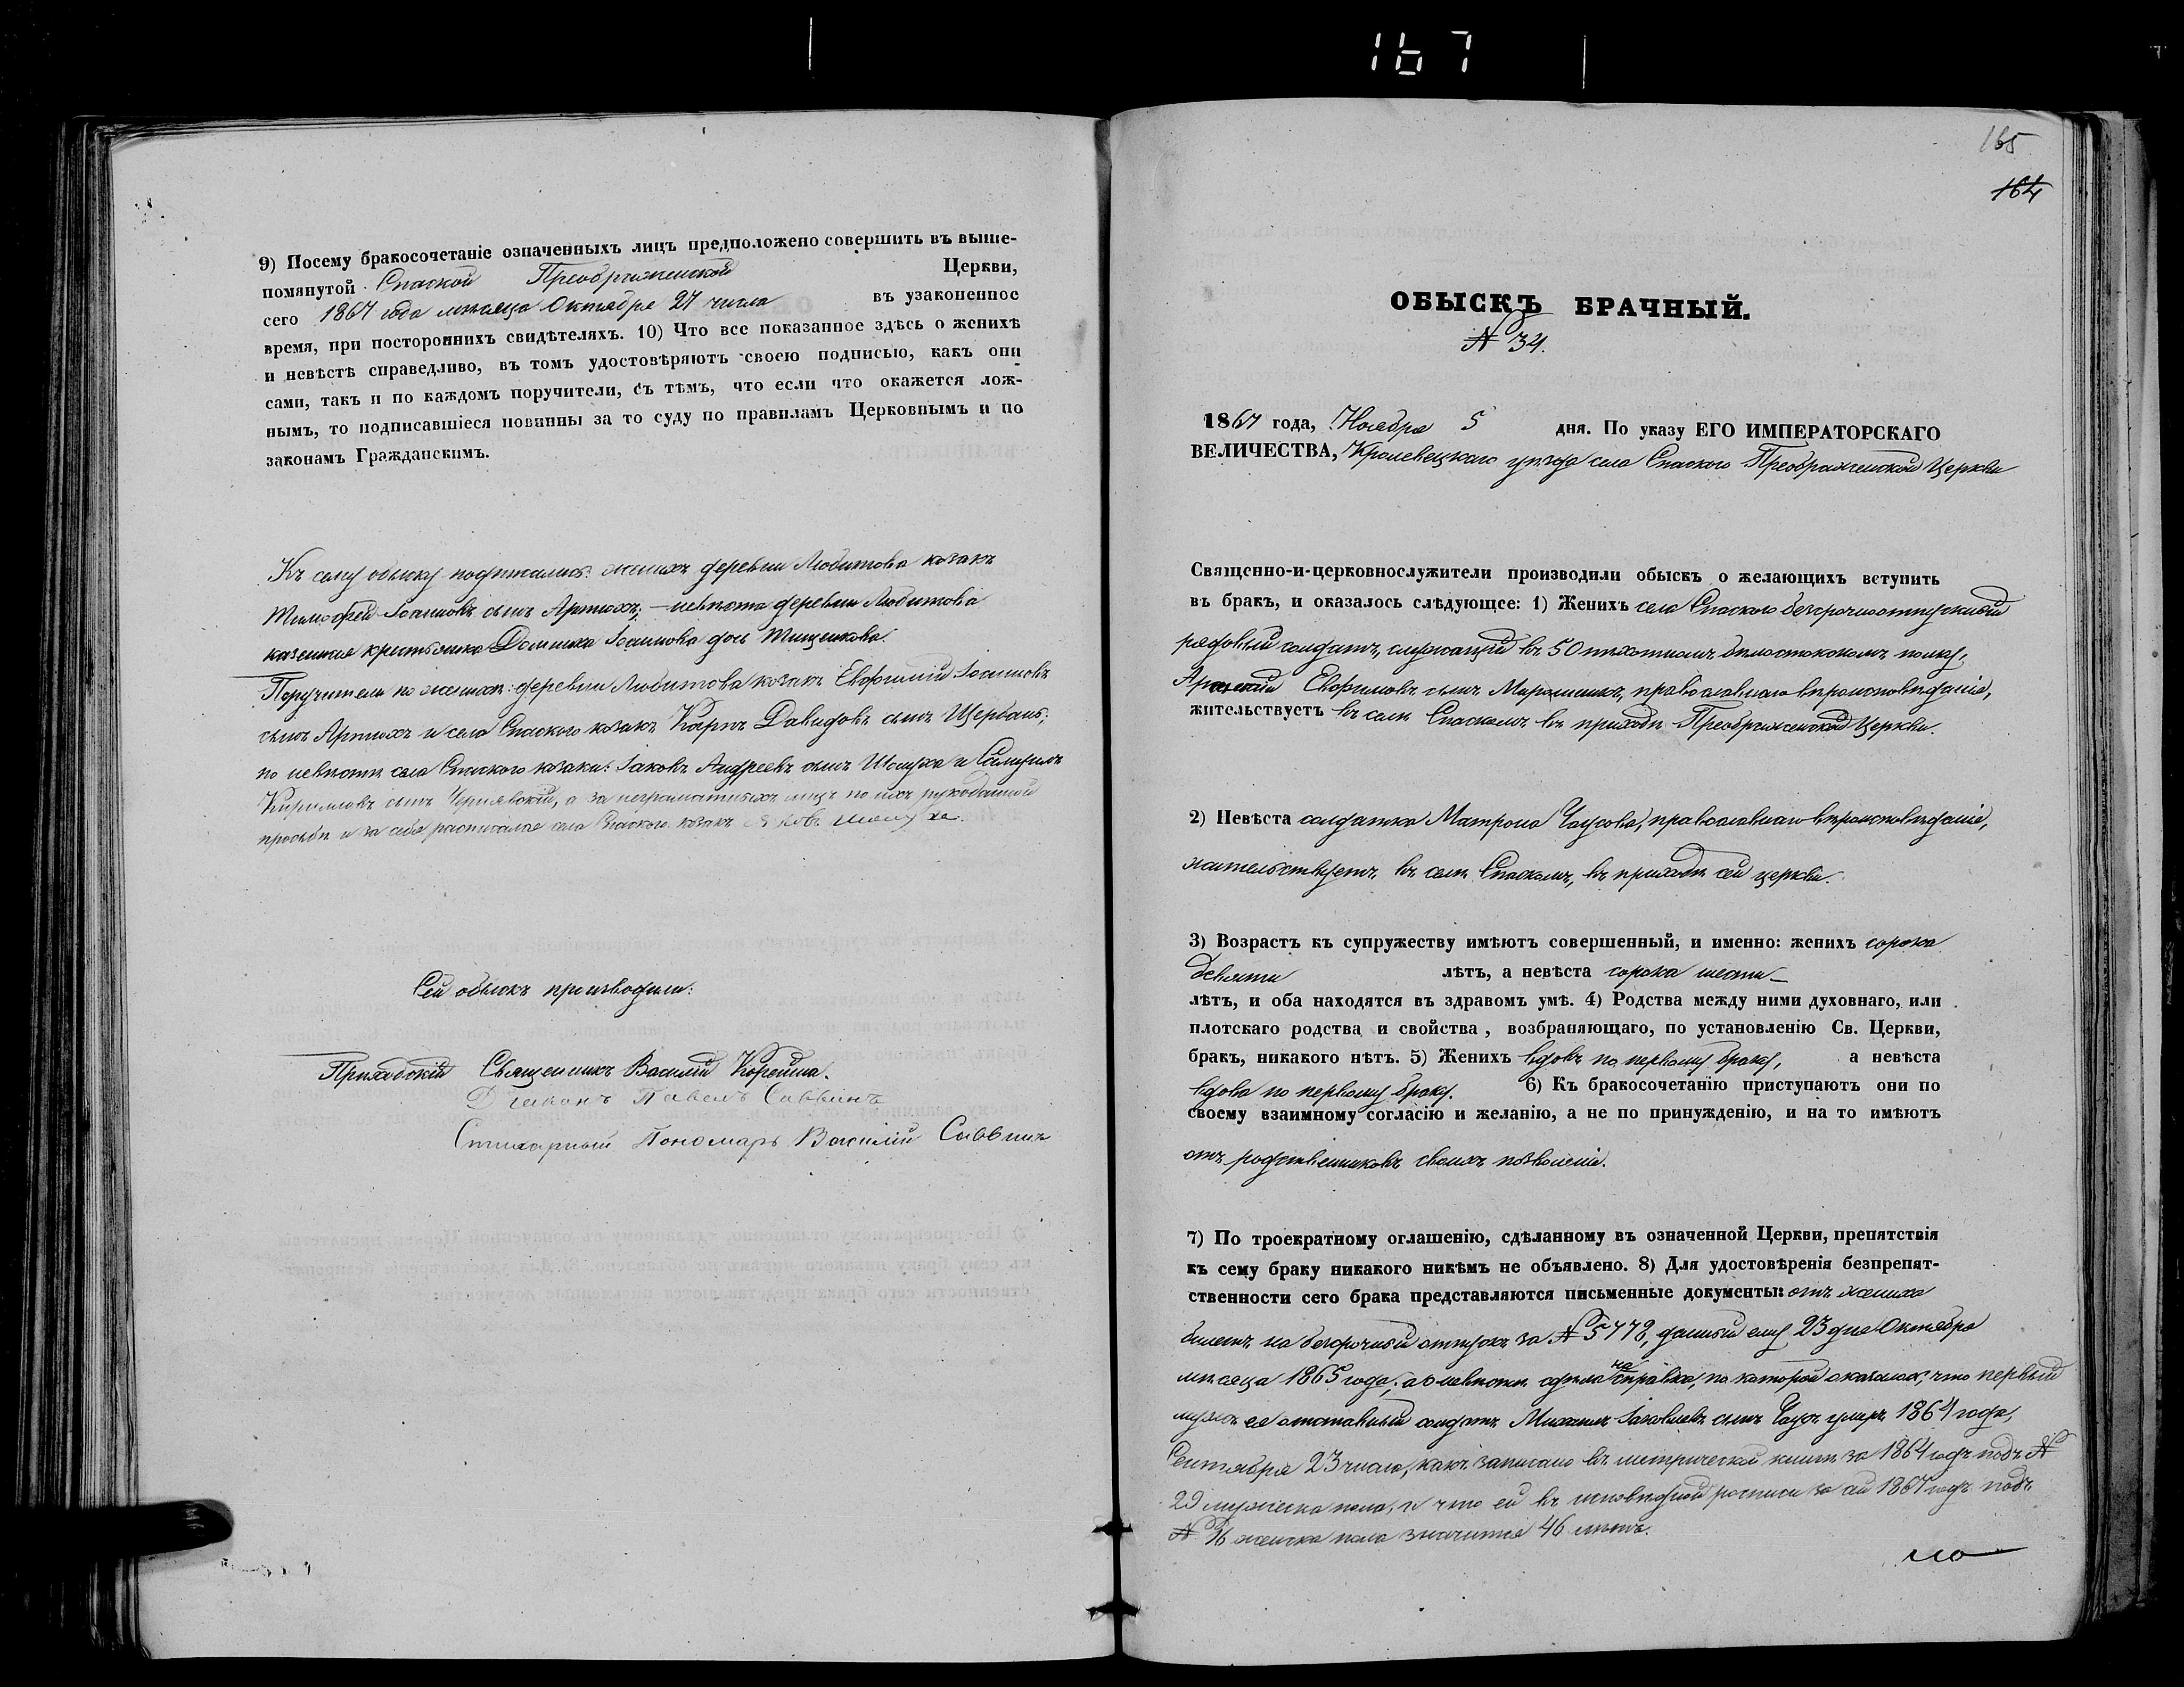 167
9) Посему бракосочетаніе означенныхъ лицъ предположено совершить въ выше-
помянутой Спаской Преображенской Церкви,
сего 1867 года мѣсяца Октября 27 числа въ узаконенное
время, при постороннихъ свидѣтеляхъ. 10) Что все показанное здѣсь о женихѣ
и невѣстѣ справедливо, въ томъ удостовѣряютъ своею подписью, какъ они
сами, такъ и по каждомъ поручители, съ тѣмъ, что если что окажется лож-
нымъ, то подписавшіеся повинны за то суду по правиламъ Церковнымъ и по
законамъ Гражданскимъ.
Къ сему обыску подписались: женихъ деревни Любитова козакъ
Тимофей Іоанновъ сынъ Артюхъ; — невѣста деревни Любитова
казенная крестьянка Домника Іоаннова дочь Тищенкова.
Поручители по женихѣ: деревни Любитова козакъ Евфимій Іоанновъ
сынъ Артюхъ и села Спаского козакъ Карпъ Давидовъ сынъ Щербань;
по невѣстѣ села Спаского козаки: Іаковъ Андреевъ сынъ Шолуха и Самуилъ
Кириловъ сынъ Чернявскій, а за неграмотныхъ лицъ по ихъ рукоданной
просьбѣ и за себя росписался села Спаского козакъ Яковъ Шолуха.
Сей обыскъ производили:
Приходскій Священникъ Василій Корейша.
Діаконъ Павелъ Саввинъ
Стихарный Пономарь Василій Саввичъ
165
164
ОБЫСКЪ БРАЧНЫЙ.
№ 34.
1867 года, Ноября 5 дня. По указу ЕГО ИМПЕРАТОРСКАГО
ВЕЛИЧЕСТВА, Кролевецкаго уѣзда села Спаского Преображенской Церкви
Священно-и-церковнослужители производили обыскъ о желающихъ вступить
въ бракъ, и оказалось слѣдующее: 1) Женихъ села Спаского безсрочноотпускный
рядовый солдатъ, служащій въ 50 пѣхотномъ бѣлостокскомъ полку,
Евфимовъ сынъ Мирошникъ, православнаго вѣроисповѣданія,
жительствуетъ въ селѣ Спаскомъ въ приходѣ Преображенской Церкви.
2) Невѣста солдатка Матрона Чаусова, православнаго вѣроисповѣданія,
жительствуетъ въ селѣ Спаскомъ, въ приходѣ сей церкви.
3) Возрастъ къ супружеству имѣютъ совершенный, и именно: женихъ сорока
девяти лѣтъ, а невѣста сорока шести —
лѣтъ, и оба находятся въ здравомъ умѣ. 4) Родства между ними духовнаго, или
плотскаго родства и свойства, возбраняющаго, по установленію Св. Церкви,
бракъ, никакого нѣтъ. 5) Женихъ вдовъ по первому браку, а невѣста
вдова по первому браку. 6) Къ бракосочетанію приступаютъ они по
своему взаимному согласію и желанію, а не по принужденію, и на то имѣютъ
отъ родственниковъ своихъ позволеніе.
7) По троекратному оглашенію, сдѣланному въ означенной Церкви, препятствія
къ сему браку никакого никѣмъ не объявлено. 8) Для удостовѣренія безпрепят-
ственности сего брака представляются письменные документы: отъ жениха
билетъ на безсрочный отпускъ за № 5778, данный ему 23 дня Октября
мѣсяца 1865 года; а о невѣстѣ сдѣлана справка, по которой оказалось, что первый
мужъ ея отставный солдатъ Михаилъ сынъ Чаусъ умеръ 1864 года,
Сентября 23 числа, какъ записано въ метрической книгѣ за 1864 годъ подъ №
29 мужеска пола, и что ей въ исповѣдной росписи за сей 1867 годъ подъ
№ 96 женска пола значится 46 лѣтъ.